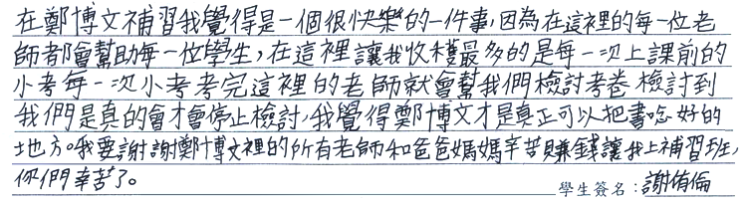 在鄭博文補習我覺得是一個很快樂的一件事,因為在這裡的每一位老
師都會幫助每一位學生,在這裡讓我收穫最多的是每一次上課前的
小考每一次小考考完這裡的老師就會幫我們檢討考卷檢討到
我們是真的會才會停止檢討,我覺得鄭博文才是真正可以把書唸好的
地方。我要謝謝鄭博文裡的所有老師和爸爸媽媽辛苦賺錢讓我上補習班,
你們幸苦了。
學生簽名:謝侑倫